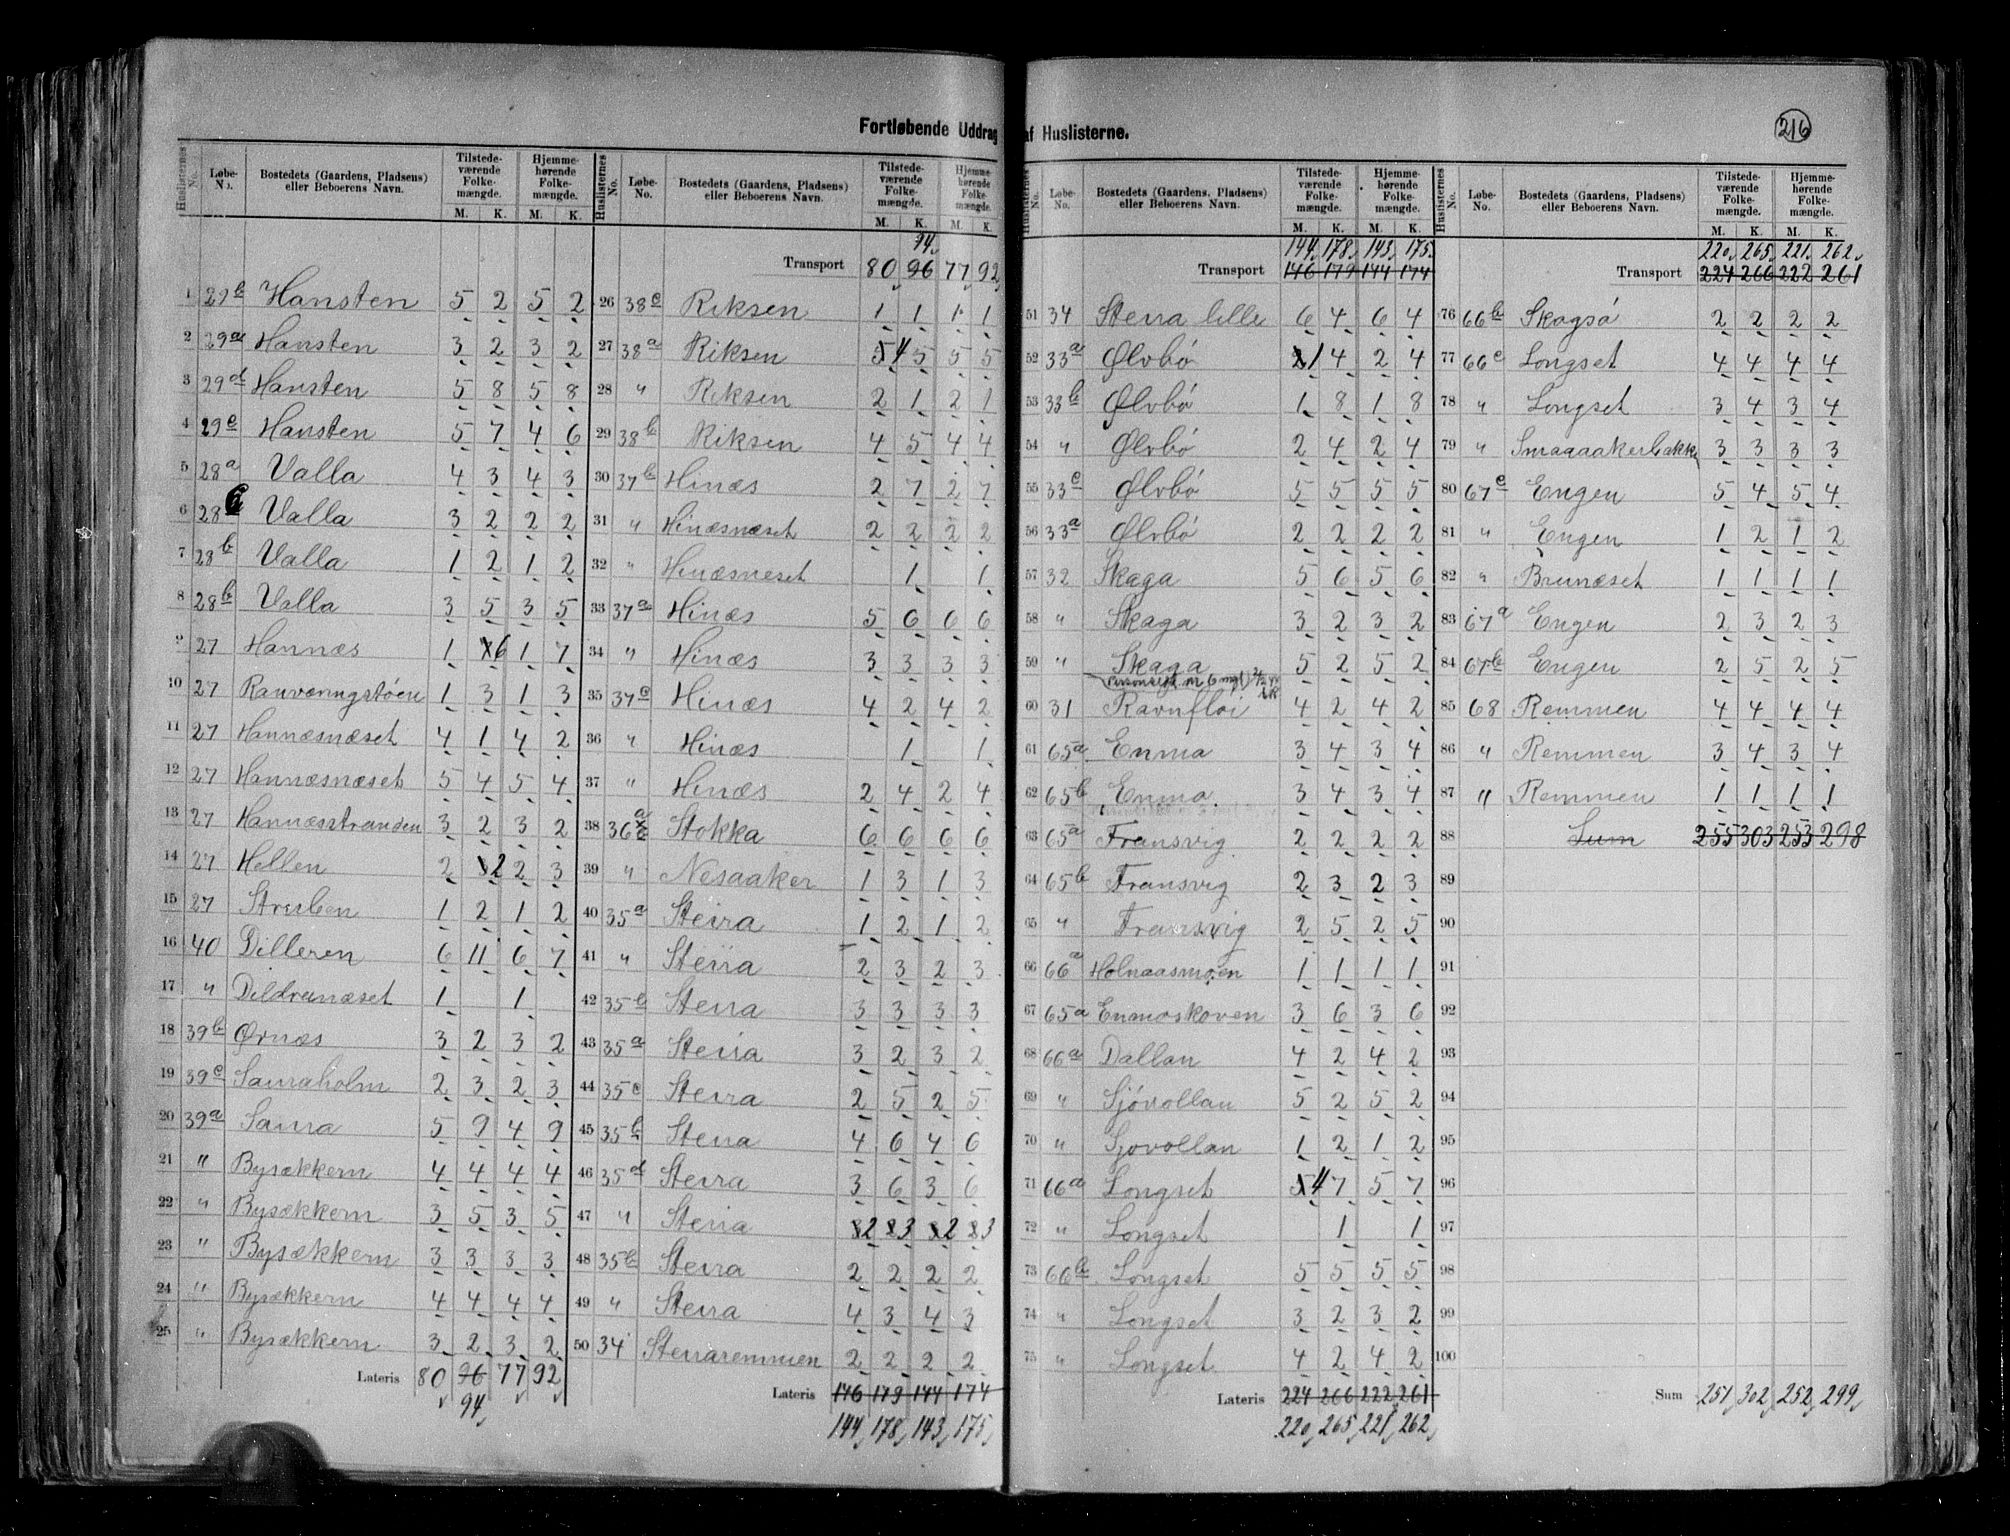 Fortløbende Uddrag af Huslisterne.
216
Huslisternes No. Løbe-No. Bostedets (Gaardens, Pladsens) eller Beboerens Navn. Tilstedeværende Folkemængde. M. K. Hjemmehørende Folkemængde. M. K.
1 29b Hansten 5 2 5 2
2 29a Hansten 3 2 3 2
3 29d Hansten 5 8 5 8
4 29c Hansten 5 7 4 6
5 28a Valla 4 3 4 3
6 28c Valla 3 2 2 2
7 28b Valla 1 2 1 2
8 28b Valla 3 5 3 5
9 27 Hannæs 1 6 1 7
10 27 Ranværingstøen 1 3 1 3
11 27 Hannæsnæset 4 1 4 2
12 27 Hannæsnæset 5 4 5 4
13 27 Hannæsstranden 3 2 3 2
14 27 Hellen 2 2 2 3
15 27 Struben 1 2 1 2
16 40 Dilleren 6 11 6 7
17 " Dildrenæset 1 1
18 39b Ørnæs 3 2 3 2
19 39c Sauraholm 2 3 2 3
20 39a Saura 5 9 4 9
21 " Bysækkern 4 4 4 4
22 " Bysækkern 3 5 3 5
23 " Bysækkern 3 3 3 3
24 " Bysækkern 4 4 4 4
25 " Bysækkern 3 2 3 2
Lateris 80 96 77 92
94
Huslisternes No. Løbe-No. Bostedets (Gaardens, Pladsens) eller Beboerens Navn. Tilstedeværende Folkemængde. M. K. Hjemmehørende Folkemængde. M. K.
94
Transport 80 96 77 92
26 38c Riksen 1 1 1 1
27 38a Riksen 5 4 5 5 5
28 " Riksen 2 1 2 1
29 38b Riksen 4 5 4 4
30 37b Hinæs 2 7 2 7
31 " Hinæsnæset 2 2 2 2
32 " Hinæsneset 1 1
33 37a Hinæs 5 6 6 6
34 " Hinæs 3 3 3 3
35 37c Hinæs 4 2 4 2
36 " Hinæs 1 1
37 " Hinæs 2 4 2 4
38 36a Stokka 6 6 6 6
39 " Nesaaker 1 3 1 3
40 35a Steira 1 2 1 2
41 " Steira 2 3 2 3
42 35b Steira 3 3 3 3
43 35a Steira 3 2 3 2
44 35c Steira 2 5 2 5
45 35b Steira 4 6 4 6
46 35d Steira 3 6 3 6
47 " Steira 2 3 2 3
48 35b Steira 2 2 2 2
49 " Steira 4 3 4 3
50 34 Steiraremmen 2 2 2 2
Lateris 146 179 144 174
144 178 143 175
Huslisternes No. Løbe-No. Bostedets (Gaardens, Pladsens) eller Beboerens Navn. Tilstedeværende Folkemængde. M. K. Hjemmehørende Folkemængde. M. K.
144 178 143 175
Transport 146 179 144 174
51 34 Steira lille 6 4 6 4
52 33a Ølvbø 1 4 2 4
53 33b Ølvbø 1 8 1 8
54 " Ølvbø 2 4 2 4
55 33c Ølvbø 5 5 5 5
56 33a Ølvbø 2 2 2 2
57 32 Skaga 5 6 5 6
58 " Skaga 3 2 3 2
59 " Skaga 5 2 5 2
60 31 Ravnfloi 4 2 4 2
61 65a Enma 3 4 3 4
62 65b Enma 3 4 3 4
63 65a Fransvig 2 2 2 2
64 65b Fransvig 2 3 2 3
65 " Fransvig 2 5 2 5
66 66a Holnaasmoen 1 1 1 1
67 65a Enmoskoven 3 6 3 6
68 66a Dallan 4 2 4 2
69 " Sjøvollan 5 2 5 2
70 " Sjøvollan 1 2 1 2
71 66a Longset 5 4 7 5 7
72 " Longset 1 1
73 66b Longset 5 5 5 5
74 " Longset 3 2 3 2
75 " Longset 4 2 4 2
Lateris 224 266 222 261
220 265 221 262
Huslisternes No. Løbe-No. Bostedets (Gaardens, Pladsens) eller Beboerens Navn. Tilstedeværende Folkemængde. M. K. Hjemmehørende Folkemængde. M. K.
220 265 221 262
Transport 224 266 222 261
76 66b Skagsø 2 2 2 2
77 66c Longset 4 4 4 4
78 " Longset 3 4 3 4
79 " Smaaaakerbakk 3 3 3 3
80 67c Engen 5 4 5 4
81 " Engen 1 2 1 2
82 " Brunæset 1 1 1 1
83 67a Engen 2 3 2 3
84 67b Engen 2 5 2 5
85 68 Remmen 4 4 4 4
86 " Remmen 3 4 3 4
87 " Remmen 1 1 1 1
88 Sum 255 303 253 298
89
90
91
92
93
94
95
96
97
98
99
100
Sum 251 302 252 299